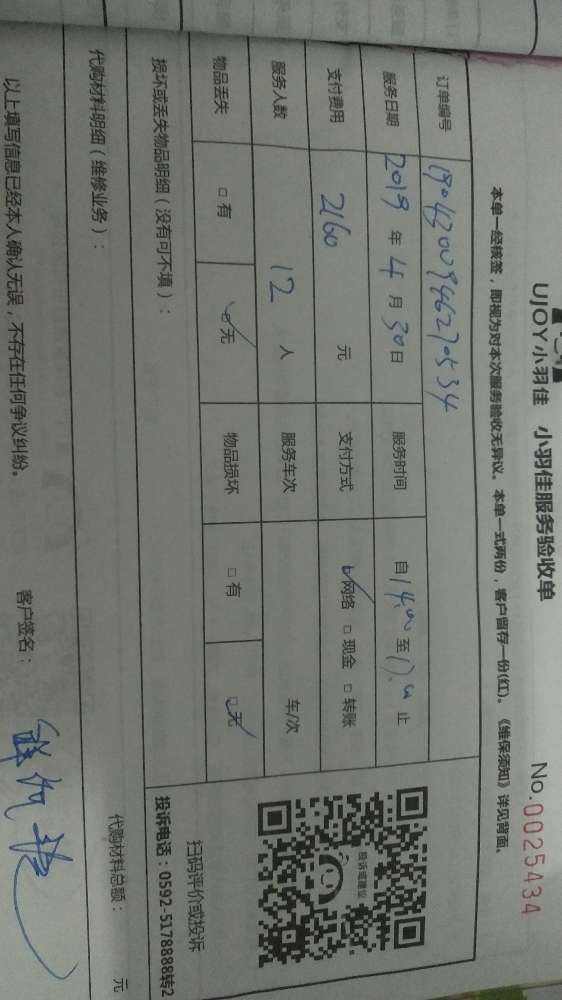 UJOY小羽佳 小羽佳服务验收单 No.0025434
本单一经核签，即视为对本次服务验收无异议。本单一式两份，客户留存一份(红)。《维保须知》详见背面。
订单编号
服务日期 2019 年 4 月 30 日 服务时间 自 14:00 至 17:00 止
支付费用 2160 元 支付方式 ☑网络 □现金 □转账
服务人数 12 人 服务车次 车/次
物品丢失 □有 ☑无 物品损坏 □有 ☑无
投诉或建议
扫码评价或投诉
投诉电话：0592-5178888转2
损坏或丢失物品明细（没有可不填）：
代购材料明细（维修业务）： 代购材料总额： 元
以上填写信息已经本人确认无误，不存在任何争议纠纷。 客户签名：